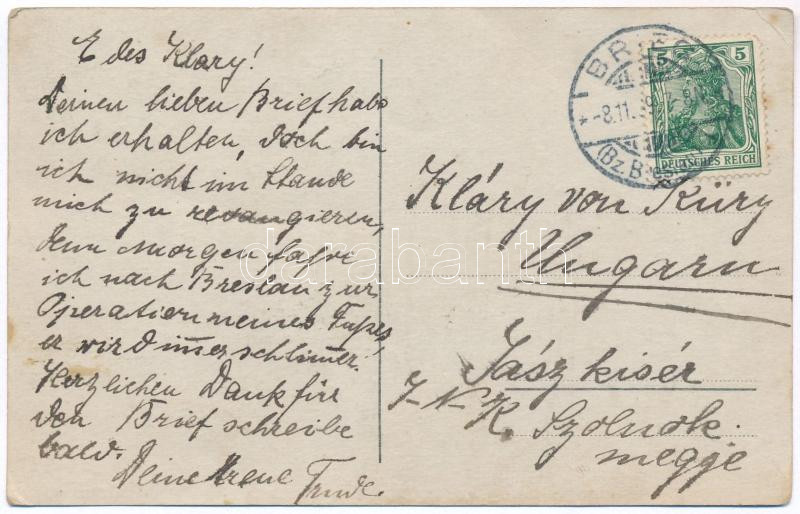 E des Klary!
Deinen lieben Brief habe
ich erhalten, doch bin
ich nicht im Stande
mich zu revangieren,
denn Morgen fahre
ich nach Breslau zur
Operation meines Fußes,
er wird immer schlimer!
Herzlichen Dank für
den Brief schreibe
bald.
Deine treue
Trude.
BRIEG
-8.11.
(Bz.
5 5
DEUTSCHES REICH
Kláry von Küry
Ungarn
Jász kisér
J-N-K. Szolnok
megge
darabanth